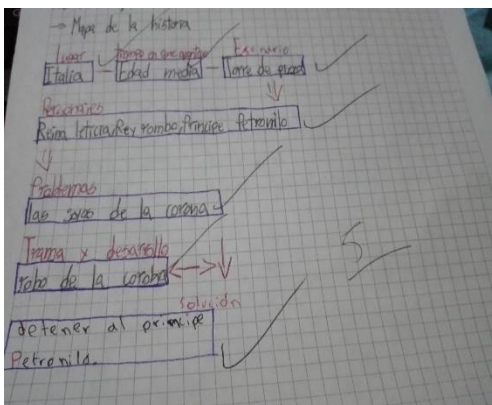 → Mapa de la historia
Lugar Tiempo en que ocurrió Escenario
Italia - Edad media - Torre de
Personajes
Reina leticia, Rey rombo, Principe Petronilo
Problemas
las de la corona
Trama y desarrollo
robo de la corona
5
solución
detener al principe
Petronilo.